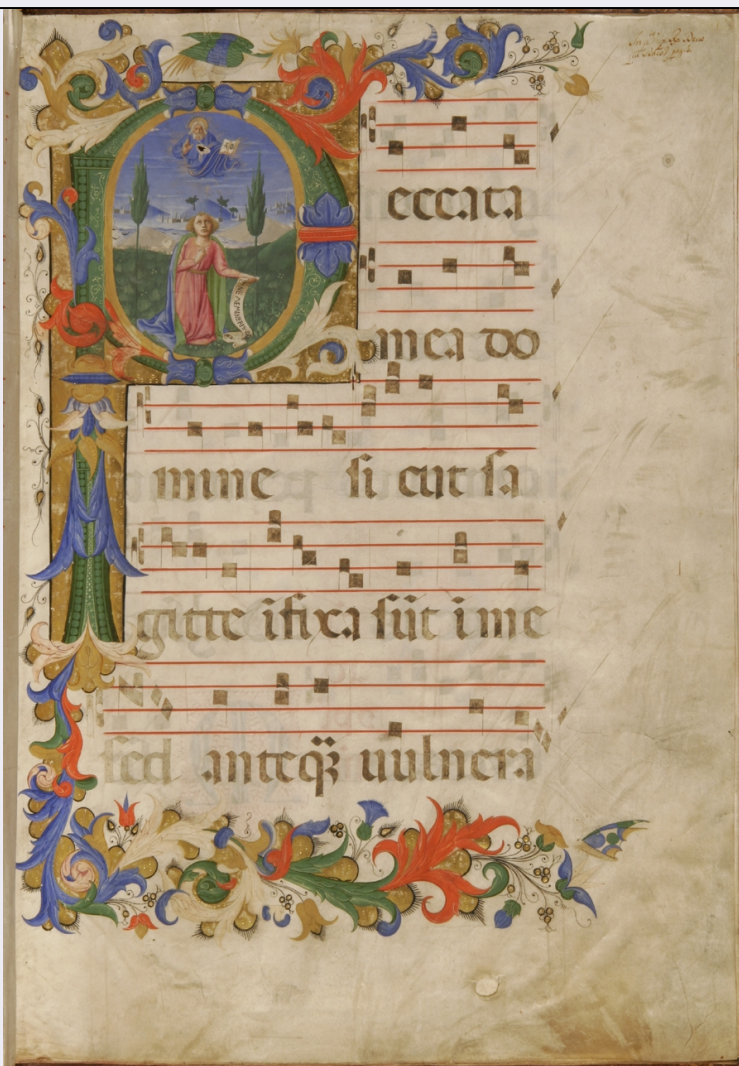 Peccata
mea do
mine si cut sa
gitte ifixa sūt i me
sed anteqȝ uulnera